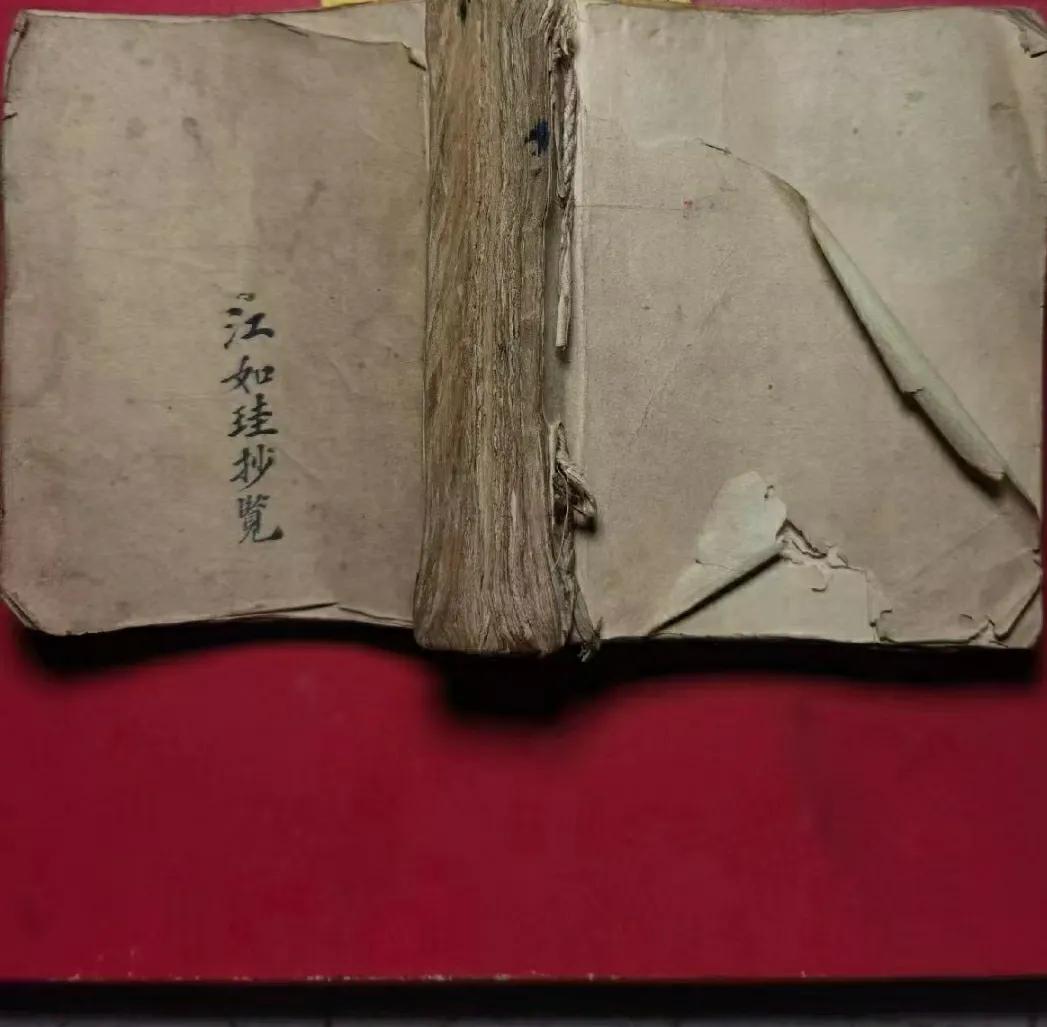 江如珪抄覽